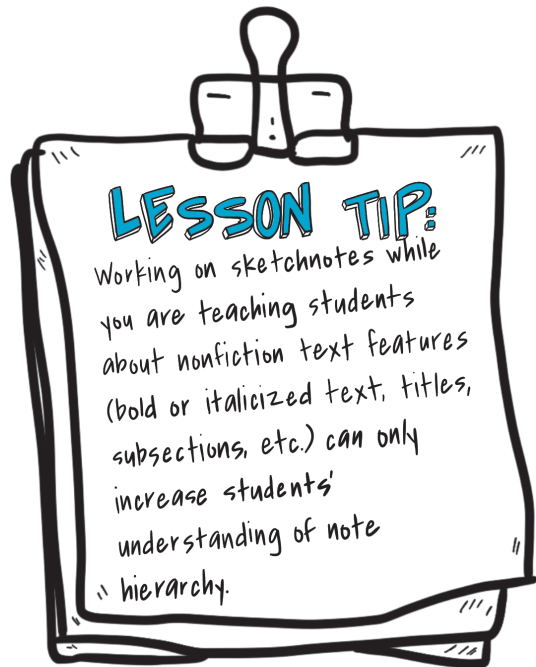 LESSON TIP:
Working on sketchnotes while
you are teaching students
about nonfiction text features
(bold or italicized text, titles,
subsections, etc.) can only
increase students'
understanding of note
hierarchy.